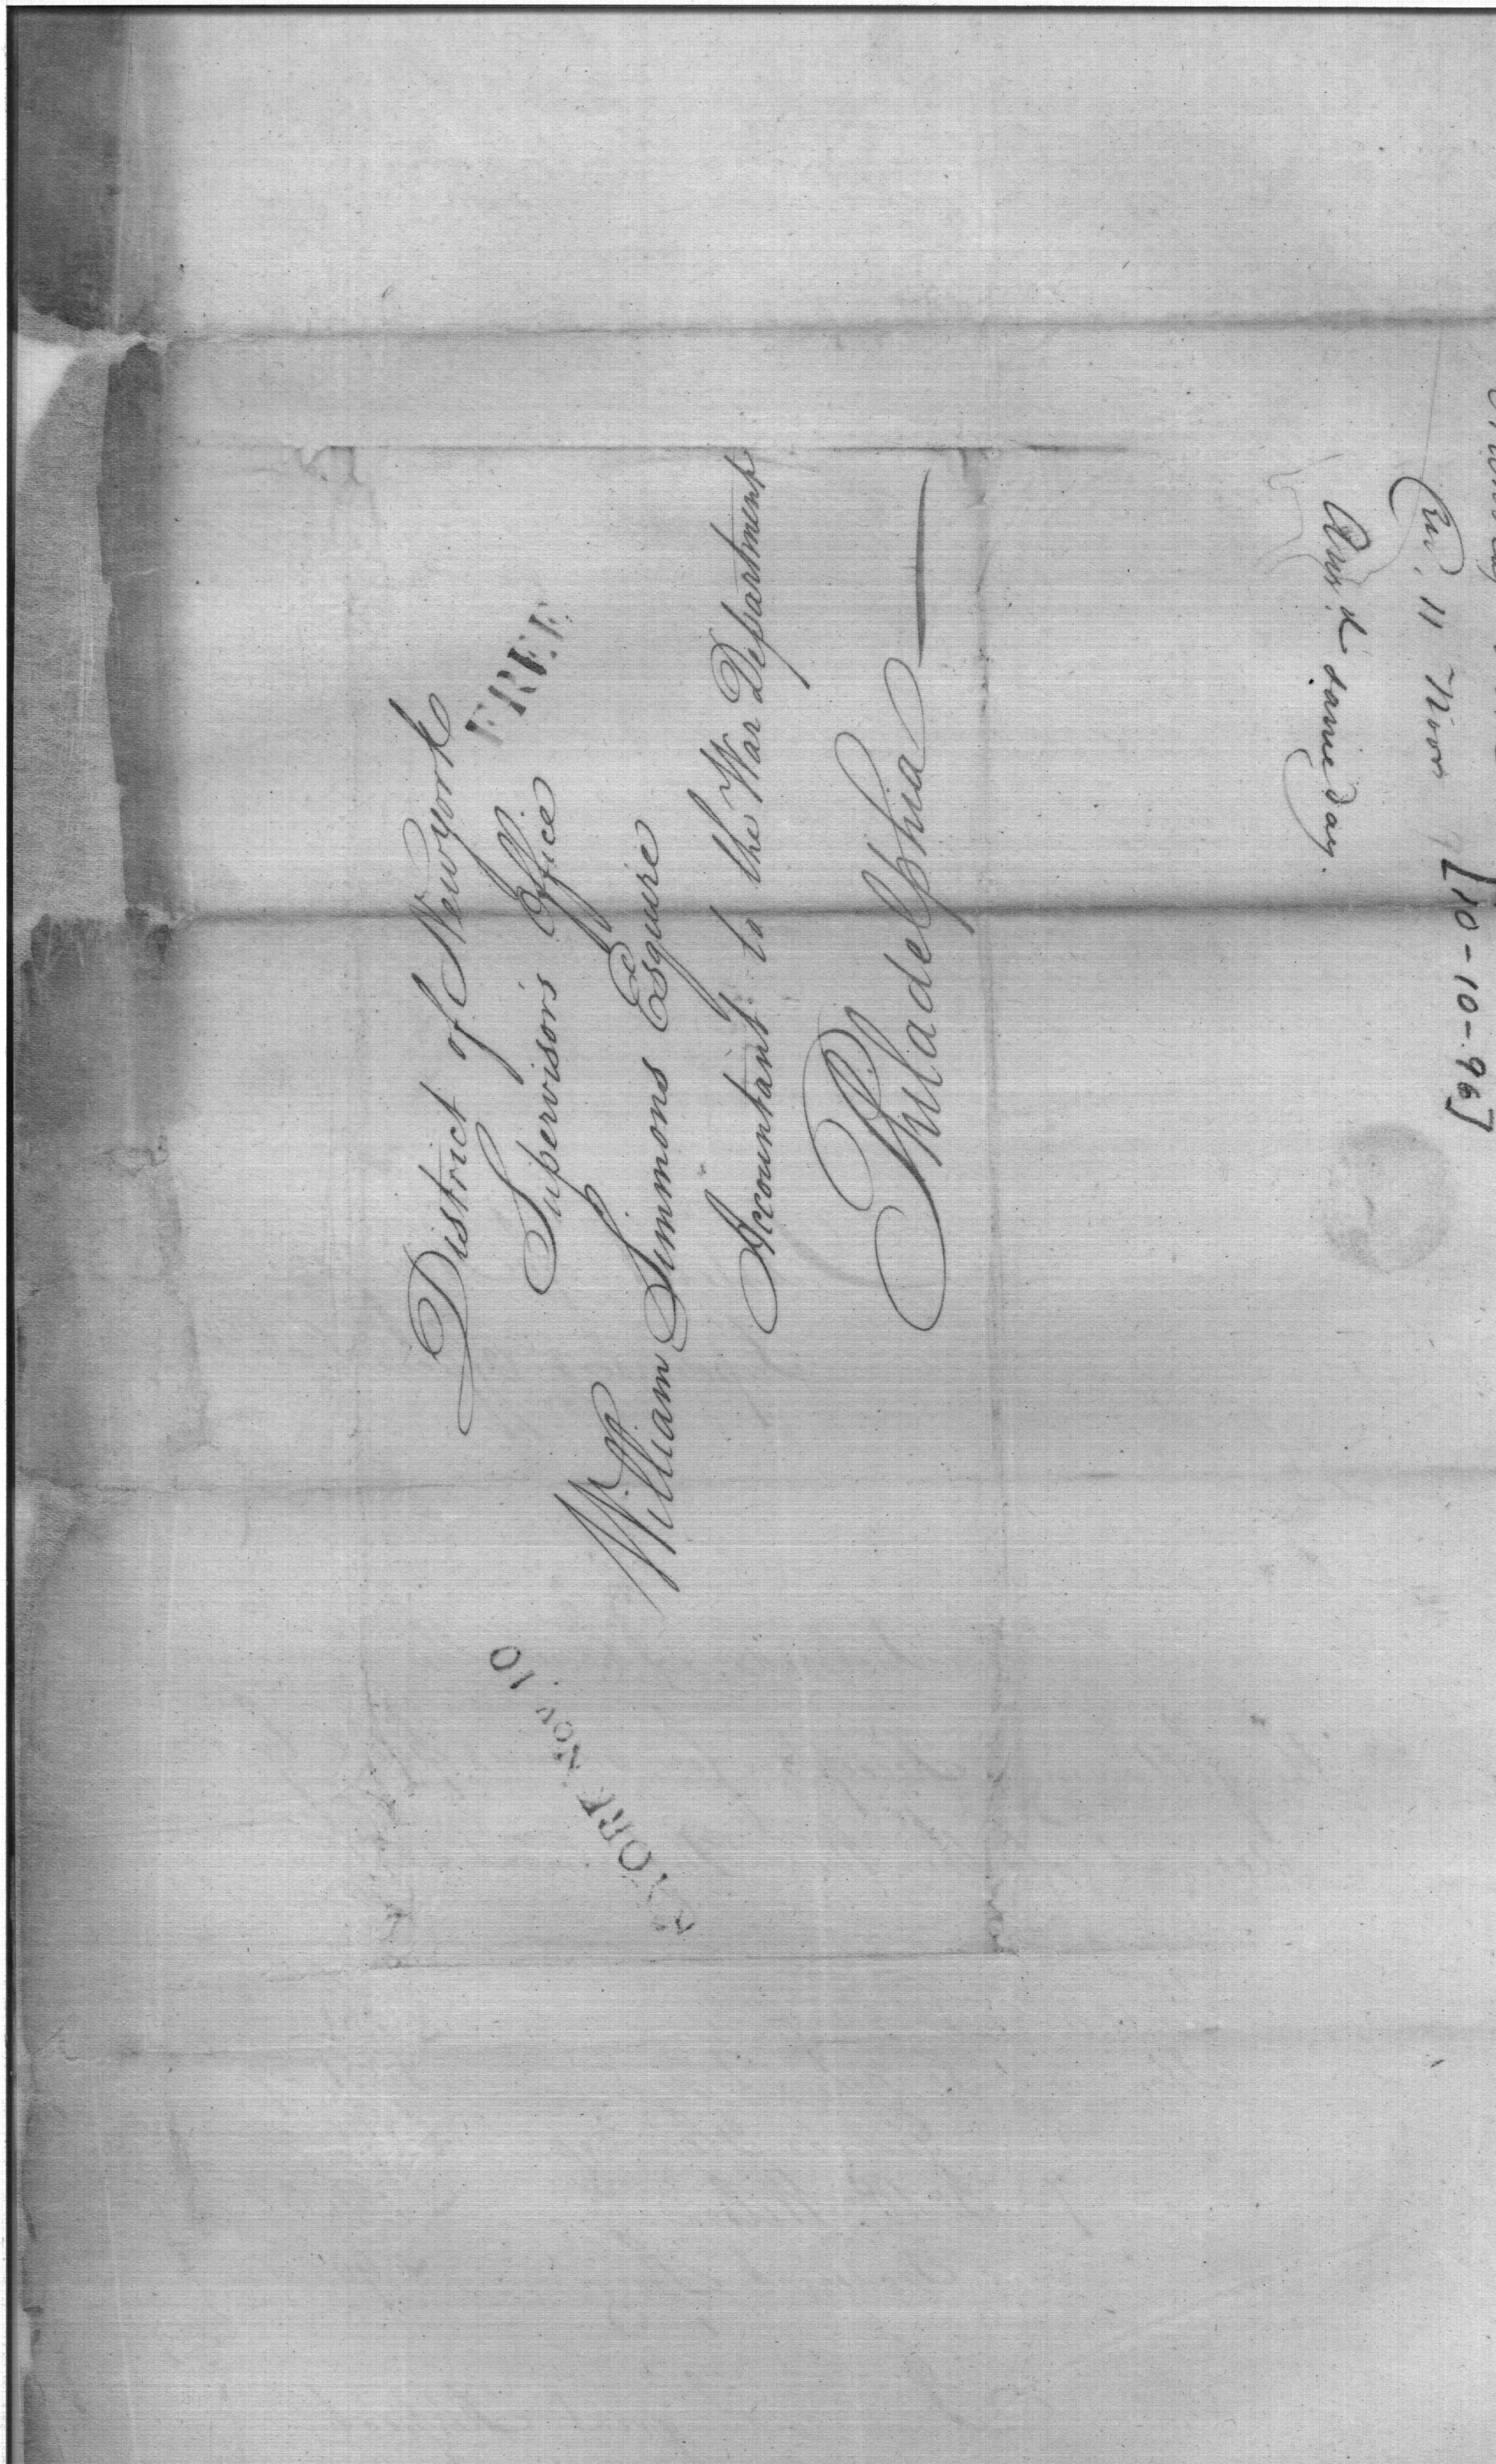 District of Newyork
Supervisors Office
FREE
William Simmons Esquire
Accountant to the War Department
Philadelphia
YORK NOV. 10
11 Novr
[10-10-96]
Answd same day.